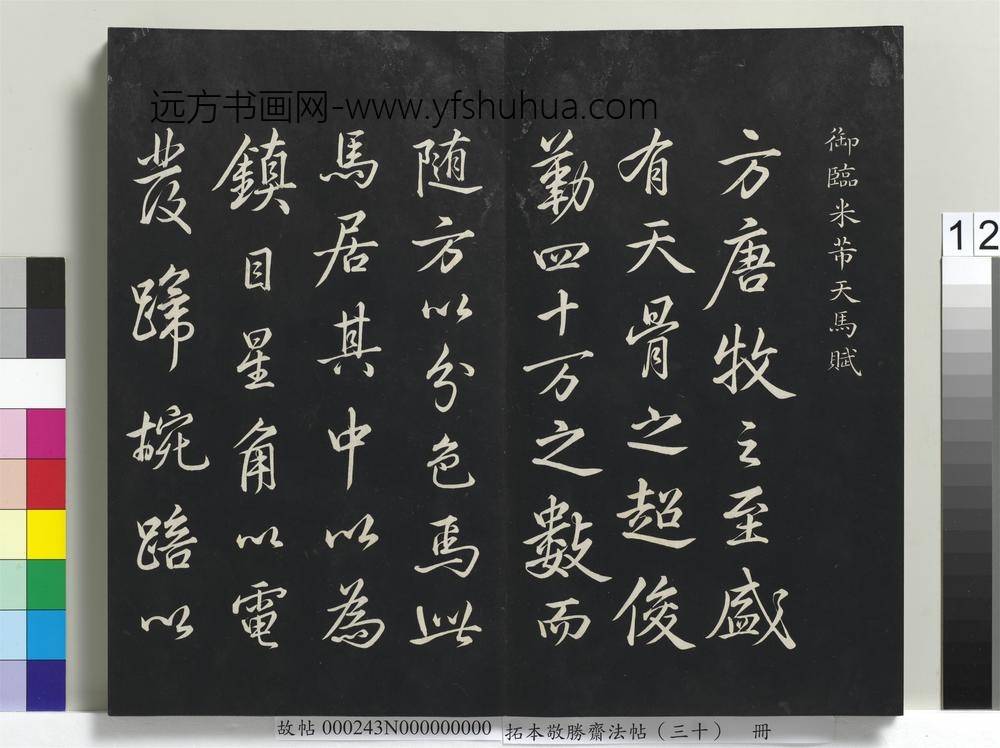 远方书画网-www.yfshuhua.com
御臨米芾天馬賦
方唐牧之至盛
有天骨之超俊
勒四十万之數而
随方以分色焉此
馬居其中以為
鎮目星角以電
發蹄椀踣以
故帖 000243N000000000
拓本敬勝齋法帖（三十） 冊
12